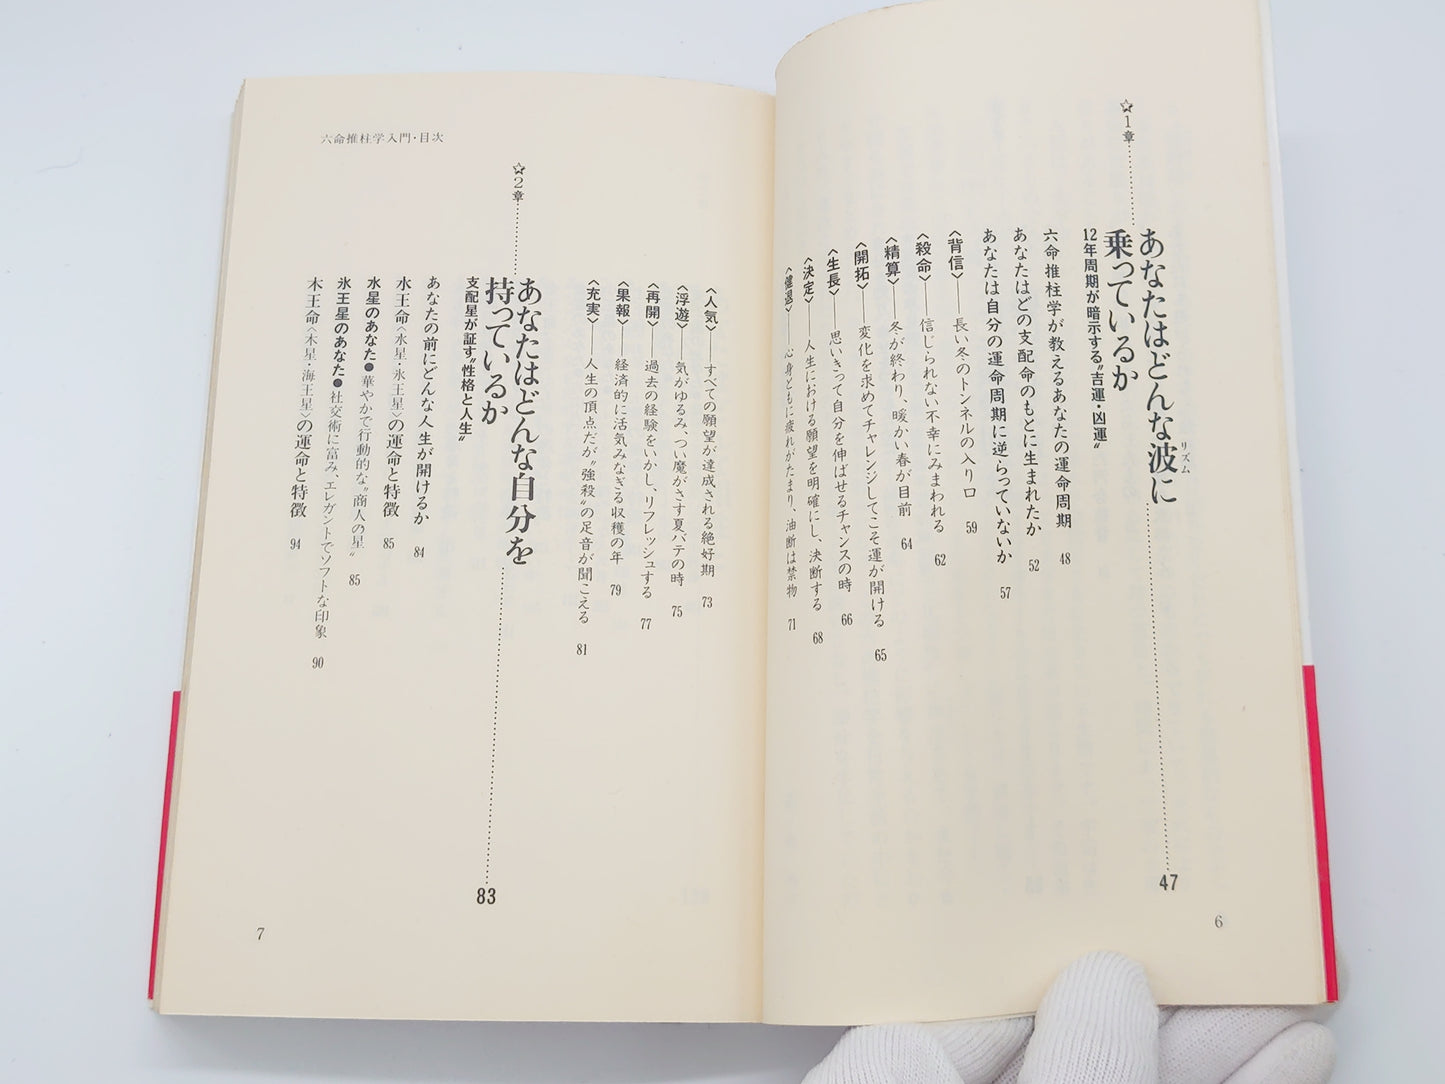 ☆1章
あなたはどんな波に
リズム
乗っているか
47
12年周期が暗示する〝吉運・凶運〟
六命推柱学が教えるあなたの運命周期 48
あなたはどの支配命のもとに生まれたか 52
あなたは自分の運命周期に逆らっていないか 57
〈背信〉——長い冬のトンネルの入り口 59
〈殺命〉——信じられない不幸にみまわれる 62
〈精算〉——冬が終わり、暖かい春が目前 64
〈開拓〉——変化を求めてチャレンジしてこそ運が開ける 65
〈生長〉——思いきって自分を伸ばせるチャンスの時 66
〈決定〉——人生における願望を明確にし、決断する 68
〈健退〉——心身ともに疲れがたまり、油断は禁物 71
6
六命推柱学入門・目次
〈人気〉——すべての願望が達成される絶好期 73
〈浮遊〉——気がゆるみ、つい魔がさす夏バテの時 75
〈再開〉——過去の経験をいかし、リフレッシュする 77
〈果報〉——経済的に活気みなぎる収穫の年 79
〈充実〉——人生の頂点だが〝強殺〟の足音が聞こえる 81
☆2章
あなたはどんな自分を
持っているか
83
支配星が証す〝性格と人生〟
あなたの前にどんな人生が開けるか 84
水王命〈水星・氷王星〉の運命と特徴 85
水星のあなた●華やかで行動的な〝商人の星〟 85
氷王星のあなた●社交術に富み、エレガントでソフトな印象 90
木王命〈木星・海王星〉の運命と特徴 94
7